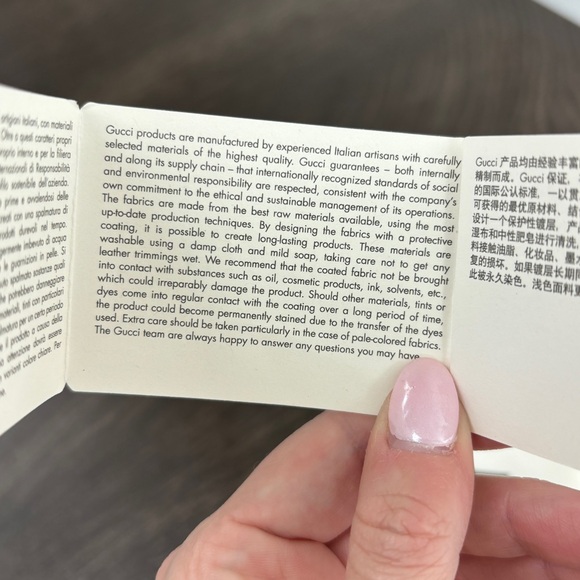 artigiani italiani, con materiali
Oltre a questi caratteri propri
proprio interno e per la filiera
nternazionali di Responsabilità
sostenibile dell'azienda.
prime e avvalendosi delle
creati con una spalmatura di
prodotti durevoli nel tempo.
imbevuto di acqua
le guarnizioni in pelle. Si
spalmato sostanze quali
potrebbero danneggiare
materiali, tinti con particolari
per un certo periodo
e il prodotto a causa della
attenzione dovrà essere
varianti colore chiare. Per
Gucci products are manufactured by experienced Italian artisans with carefully
selected materials of the highest quality. Gucci guarantees – both internally
and along its supply chain – that internationally recognized standards of social
and environmental responsibility are respected, consistent with the company's
own commitment to the ethical and sustainable management of its operations.
The fabrics are made from the best raw materials available, using the most
up-to-date production techniques. By designing the fabrics with a protective
coating, it is possible to create long-lasting products. These materials are
washable using a damp cloth and mild soap, taking care not to get any
leather trimmings wet. We recommend that the coated fabric not be brought
into contact with substances such as oil, cosmetic products, ink, solvents, etc.,
which could irreparably damage the product. Should other materials, tints or
dyes come into regular contact with the coating over a long period of time,
the product could become permanently stained due to the transfer of the dyes
used. Extra care should be taken particularly in the case of pale-colored fabrics.
The Gucci team are always happy to answer any questions you may have.
Gucci 产品均由经验丰富
精制而成。Gucci 保证，
的国际公认标准，一以贯
可获得的最优原材料、结
设计一个保护性镀层，产
湿布和中性肥皂进行清洗，
料接触油脂、化妆品、墨水
复的损坏。如果镀层长期
此被永久染色，浅色面料更